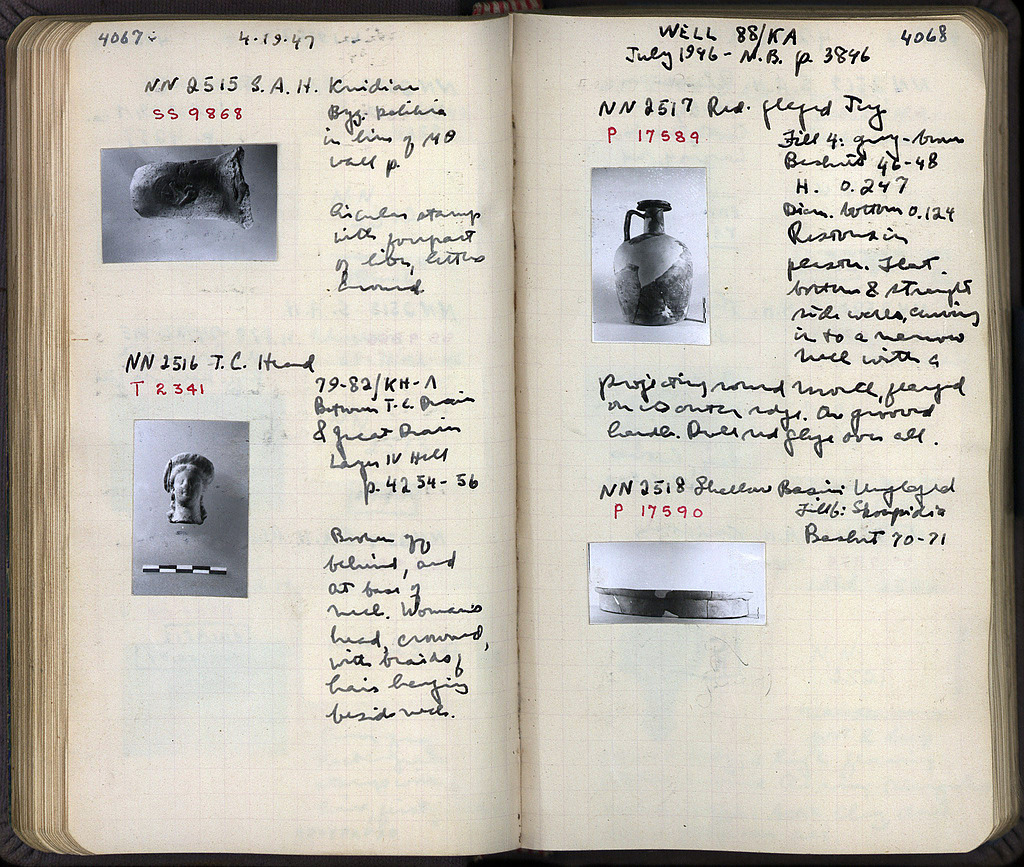 4067
4-19-47
NN 2515 S.A.H. Knidian
SS 9868
Byz.
in line of
wall p.
Circular stamp
with forepart
of lion, letters
around
NN 2516 T.C. Head
T 2341
79-82/KH-Λ
Between T.C. Drain
& Great Drain
Layer IV Hell
p. 4254-56
Broken off
behind, and
at base of
neck. Woman's
head, crowned,
with braids of
hair hanging
beside neck.
WELL 88/KA
4068
July 1946 - N.B. p. 3846
NN 2517 Red-glazed Jug
P 17589
Fill 4: grey-brown
Baskets 46-48
H. 0.247
Diam. bottom 0.124
Restored in
plaster. Flat
bottom & straight
side walls, curving
in to a narrow
neck with a
projecting round mouth, flanged
on its outer edge. One grooved
handle. Dull red glaze over all.
NN 2518 Shallow Basin: Unglazed
P 17590
Fill 6: Skoupidia
Basket 70-71